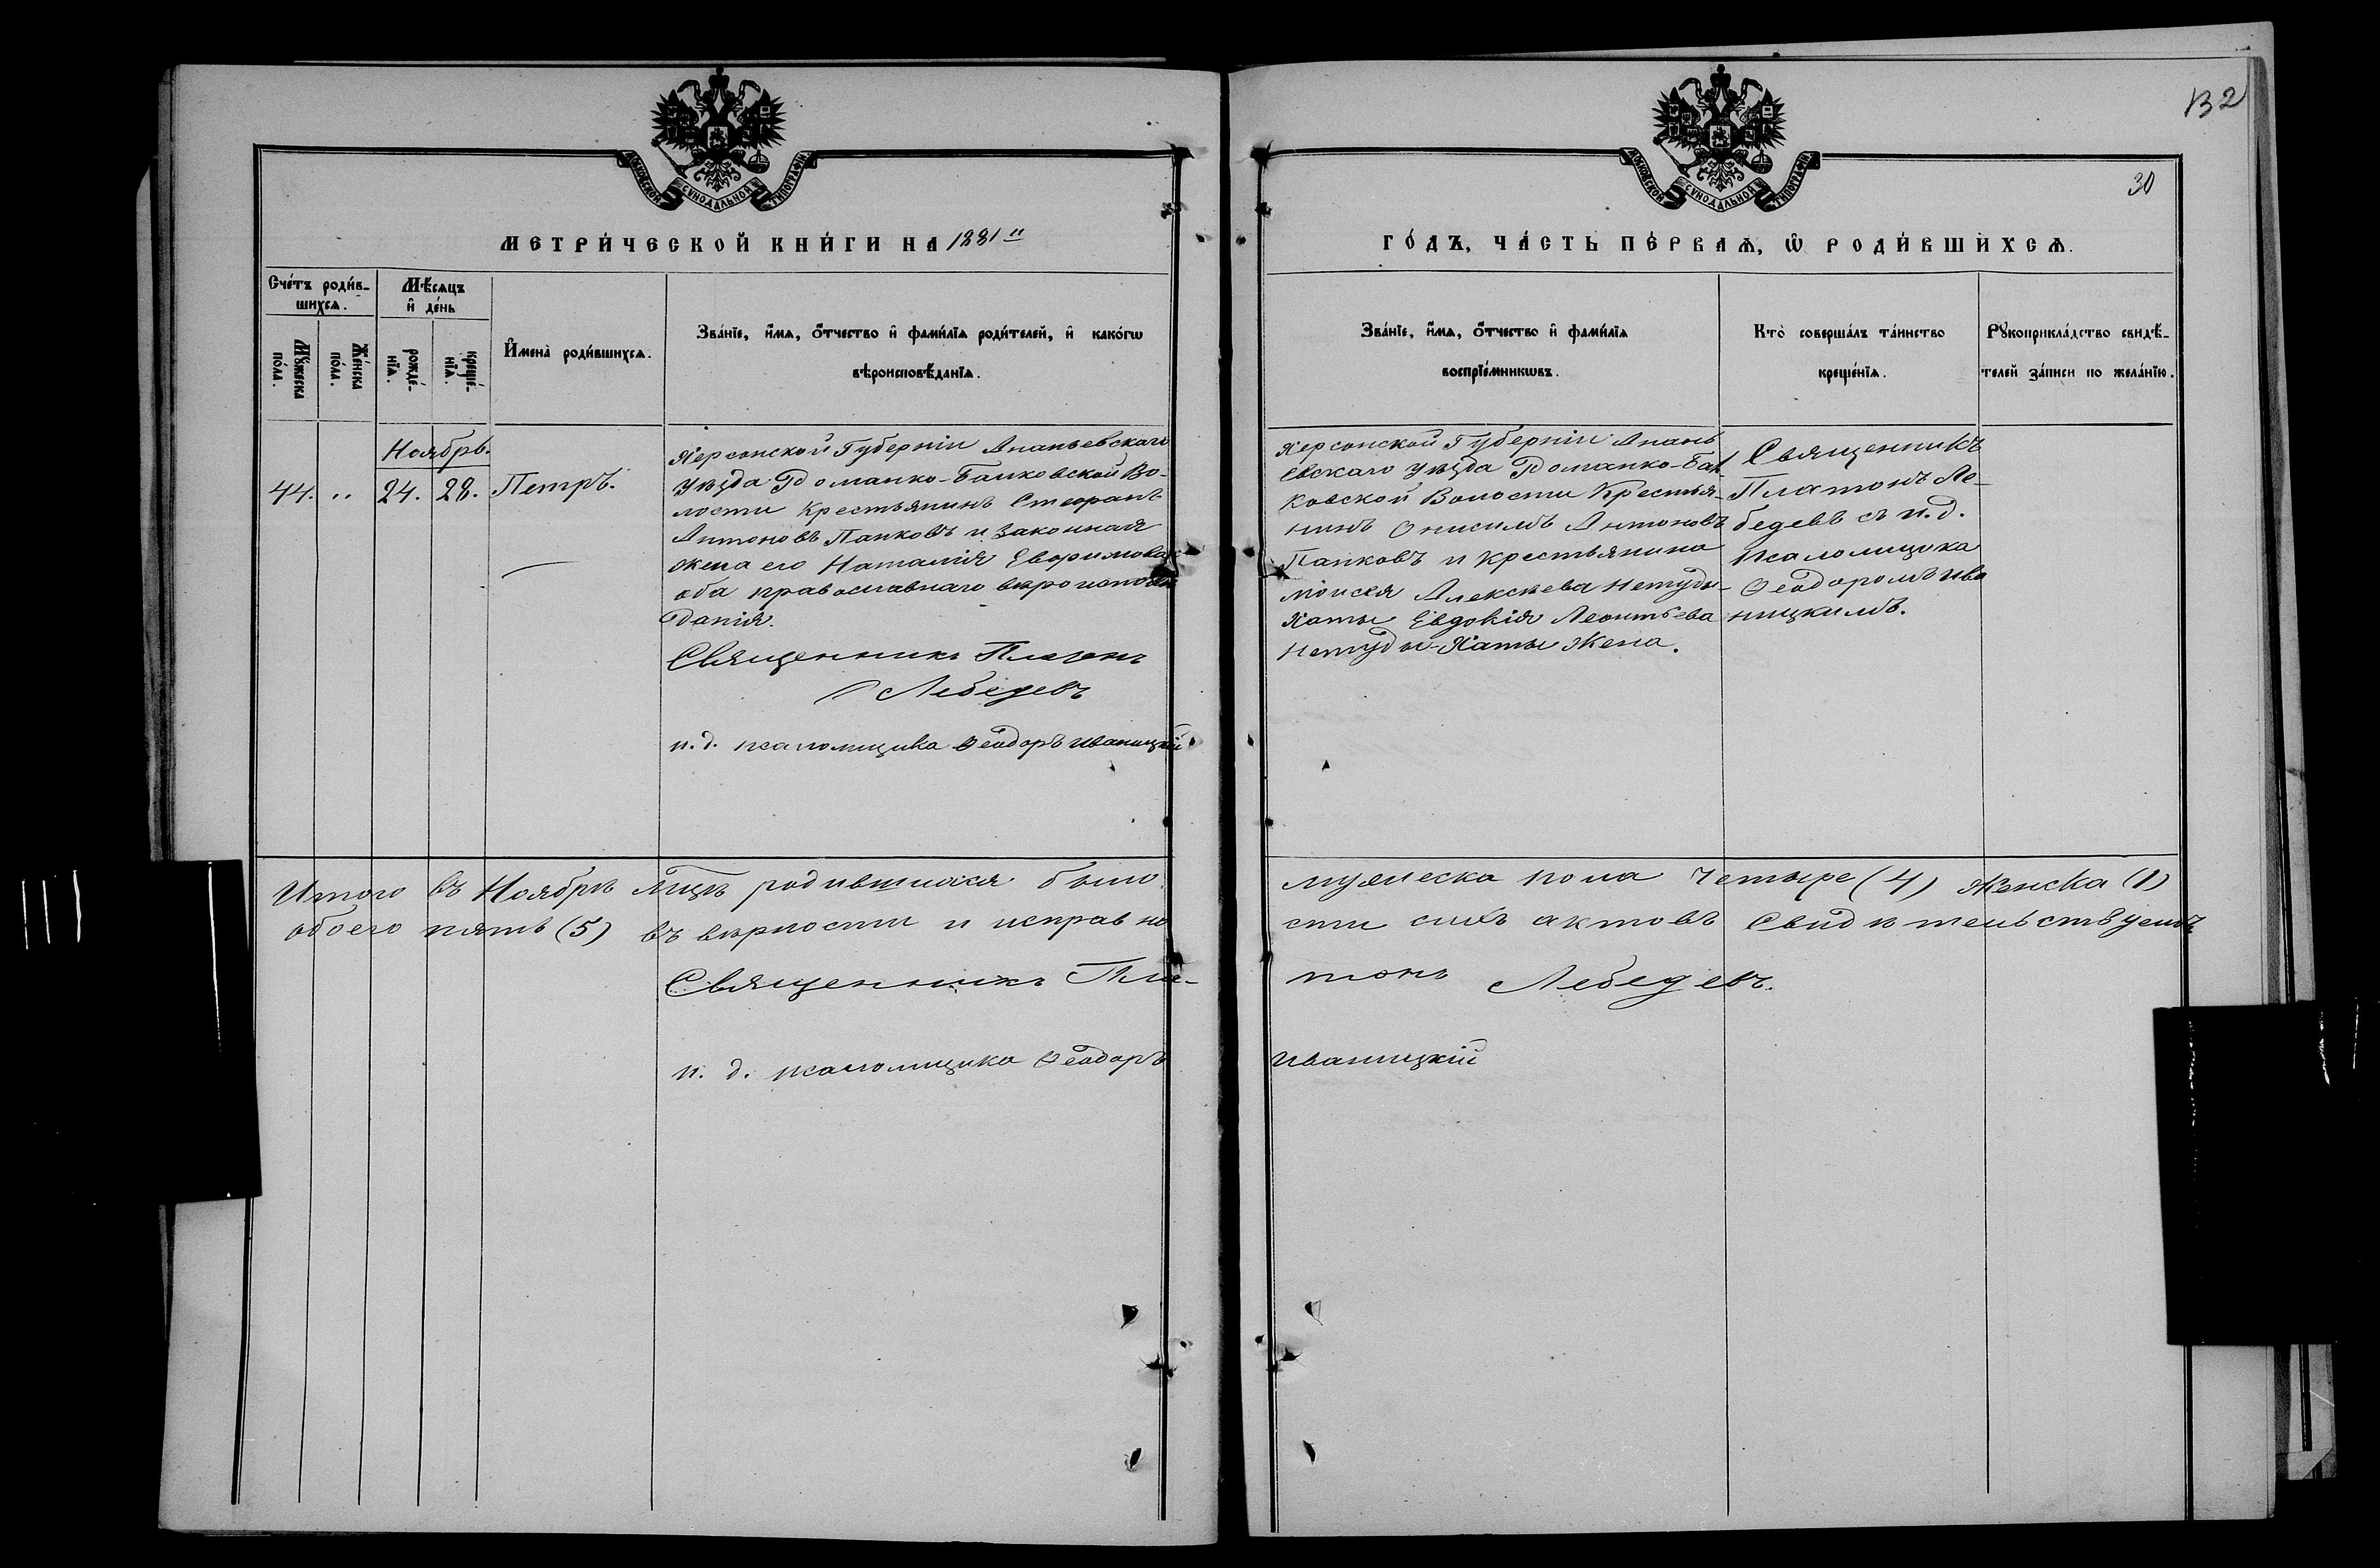 132
30
МОСКОВСКОЙ СѴНОДАЛЬНОЙ ТИПОГРАФІИ
МОСКОВСКОЙ СѴНОДАЛЬНОЙ ТИПОГРАФІИ
МЕТРИ́ЧЕСКОЙ КНИ́ГИ НА 1881й
ГО́ДЪ, ЧА́СТЬ ПЕ́РВАѦ, Ѡ҆ РОДИ́ВШИХСѦ.
Сче́тъ роди́в-
шихсѧ.
Мѣ́сѧцъ
и҆ де́нь
Мꙋ́жеска
по́ла.
Же́нска
по́ла.
рожде́-
нїѧ.
креще́-
нїѧ.
И҆мена̀ роди́вшихсѧ.
Зва́нїе, и҆́мѧ, ѻ҆́тчество и҆ фами́лїѧ роди́телей, и҆ како́гѡ
вѣроисповѣ́данїѧ.
Зва́нїе, и҆́мѧ, ѻ҆́тчество и҆ фами́лїѧ
воспрїе́мникѡвъ.
Кто̀ соверша́лъ та́инство
креще́нїѧ.
Рꙋкоприкла́дство свидѣ́-
телей за́писи по жела́нїю.
Ноябрь.
44. „ 24. 28. Петръ.
Херсонской Губерніи Ананьевскаго
уѣзда Доманко-Балковской Во-
лости Крестьянинъ Стефанъ
Антоновъ Панковъ и законная
жена его Наталія Евфимова
оба православнаго вѣроисповѣ
данія.
Священникъ Платонъ
Лебедевъ
и.д. псаломщика Ѳеодоръ Иваницкій
Херсонской Губерніи Анань
евскаго уѣзда Доманко-Бал
ковской Волости Крестья-
нинъ Онисимъ Антоновъ
Панковъ и крестьянина
Моисея Алексѣева Нетуды-
Хаты Евдокія Леонтьева
Нетуды-Хаты жена.
Священникъ
Платонъ Ле-
бедевъ съ и.д.
Псаломщика
Ѳеодоромъ Ива
ницкимъ.
Итого въ Ноябрѣ мцѣ родившихся было мужеска пола четыре (4) женска (1)
обоего пять (5) въ вѣрности и исправно сти сихъ актовъ Свидѣтельствуемъ
Священникъ Пла- тонъ Лебедевъ.
и. д. псаломщика Ѳеодоръ Иваницкій